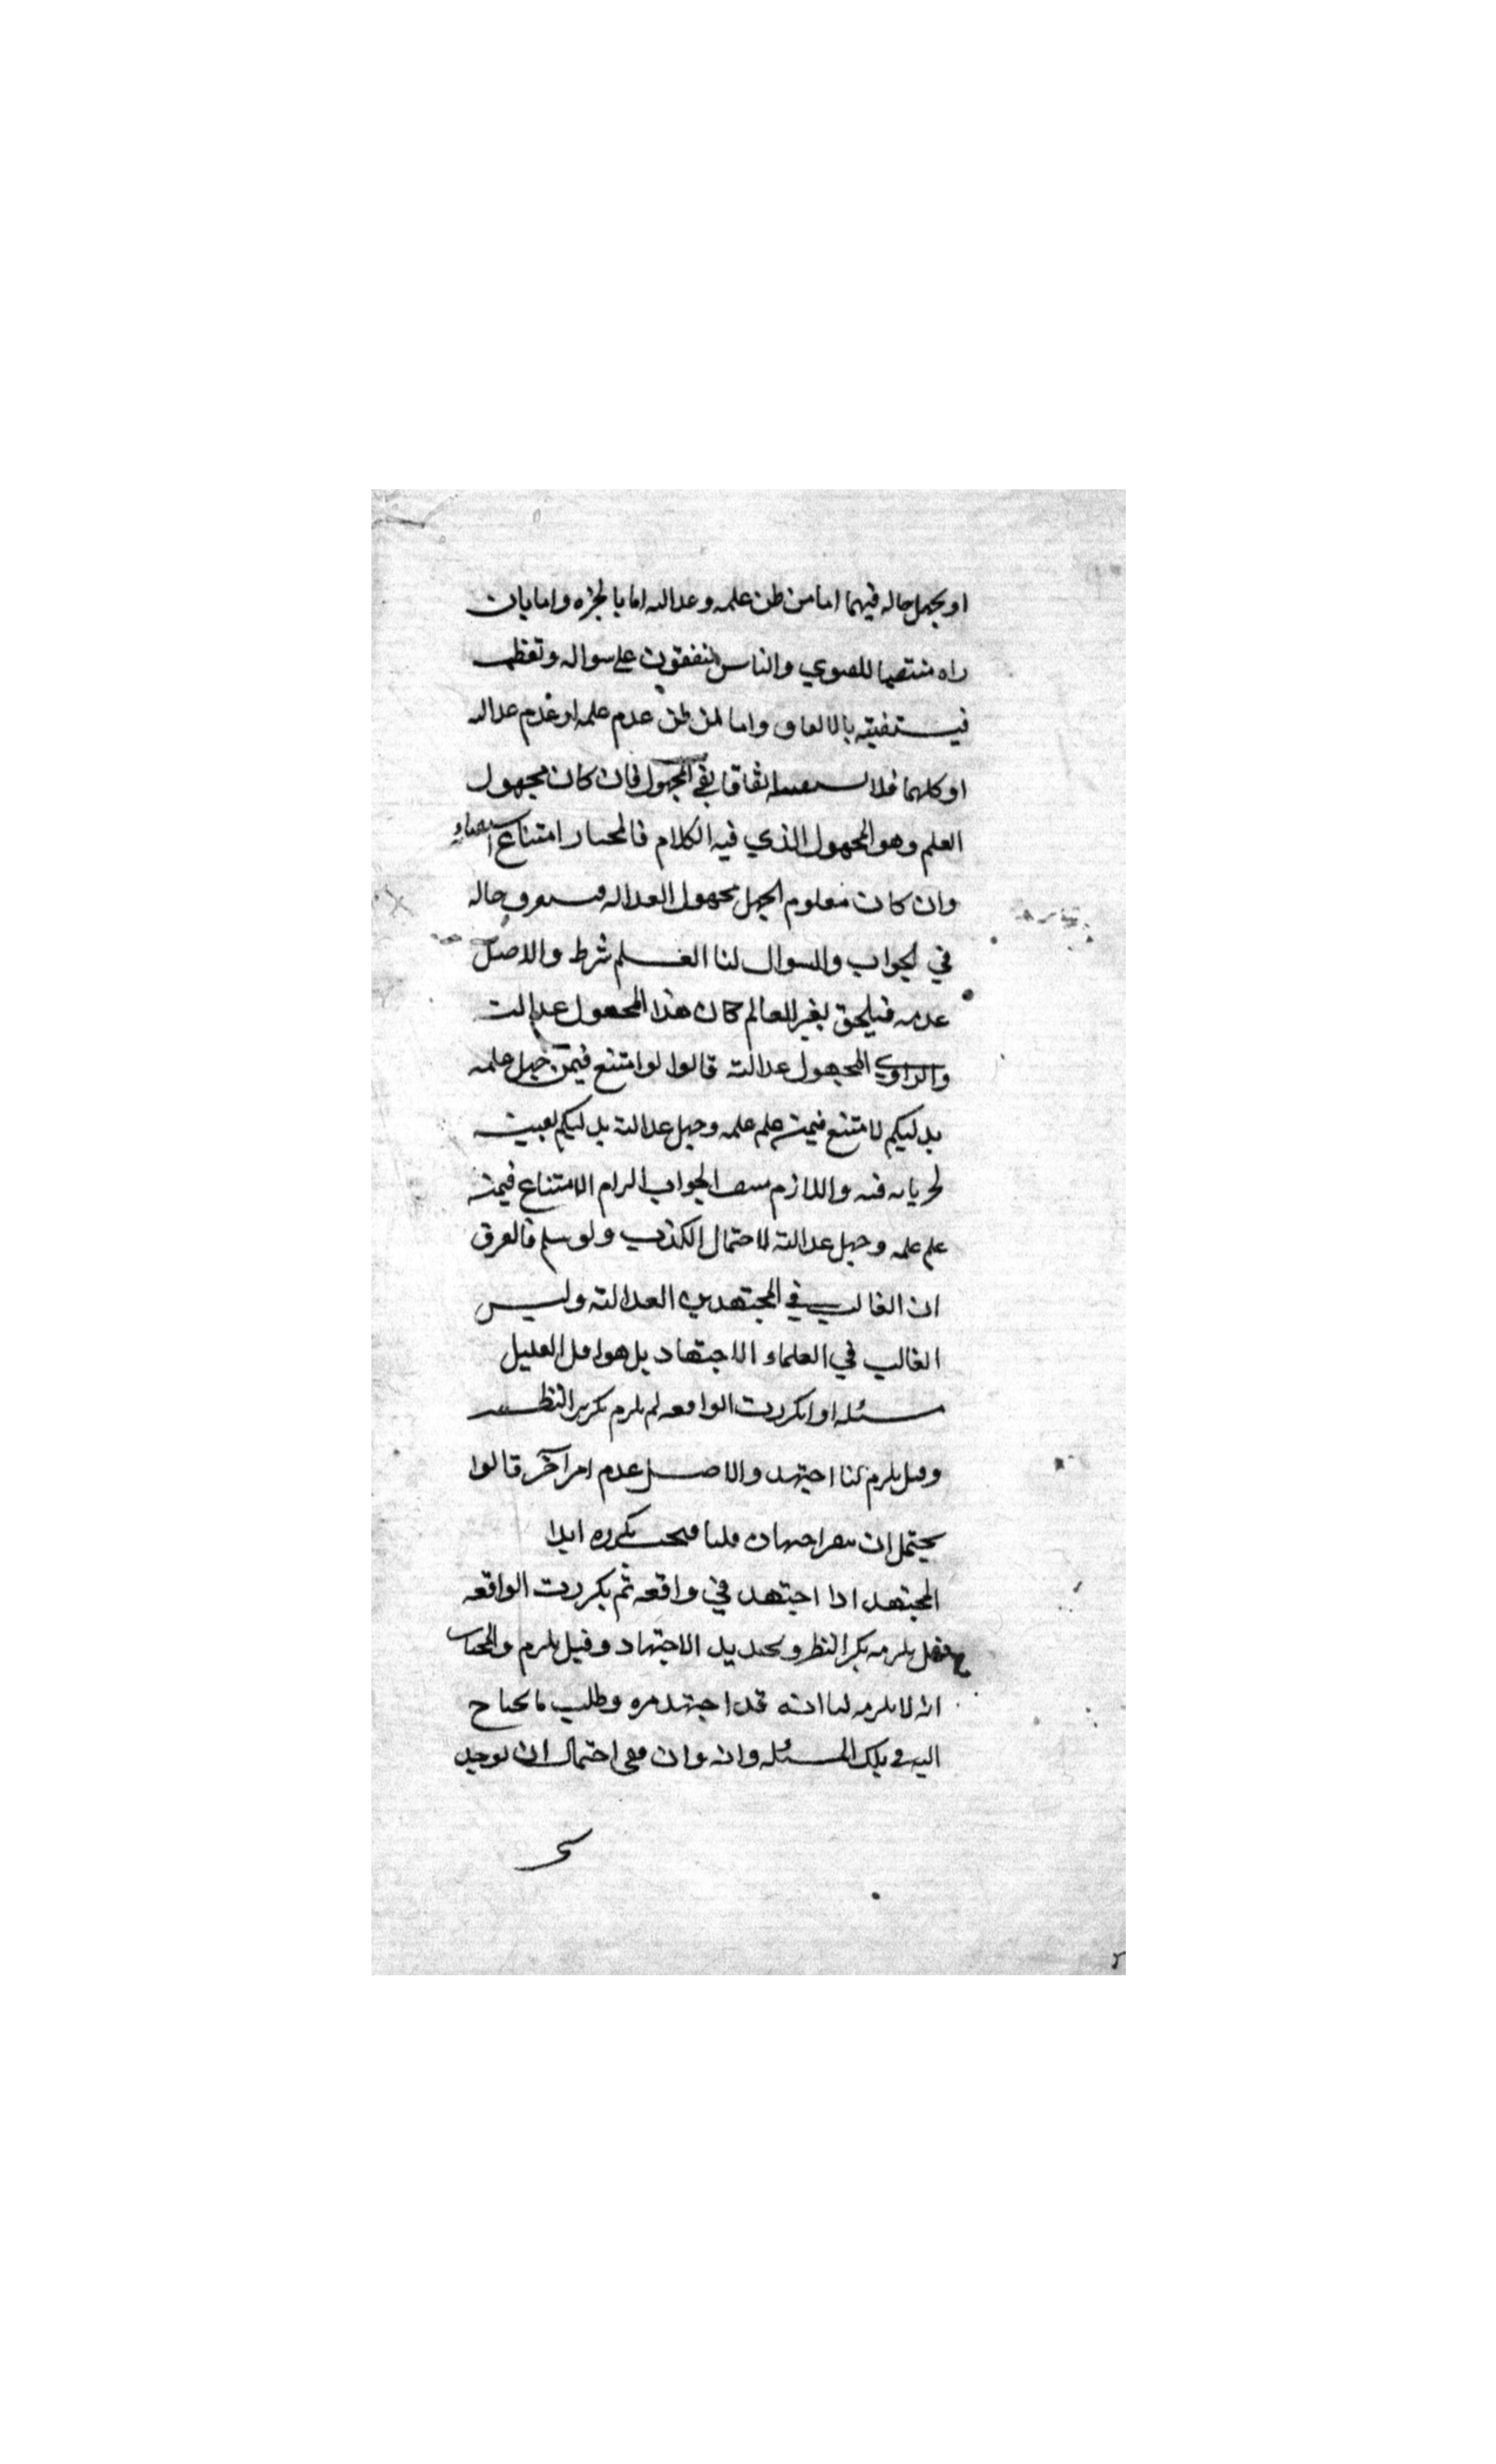 او يجهل حاله فيهما اما من ظن علمه وعدالته اما بالخبره واما بان
راه منتصبا للفتوي والناس متفقون على سواله وتعظيمه
فيستفتيه بالاتفاق واما من ظن عدم علمه او عدم عدالته
او كليهما فلا يستفتيه اتفاقا بقي المجهول فان كان مجهول
العلم وهو المجهول الذي فيه الكلام فالمختار امتناع استفتاوه
وان كان معلوم الجهل مجهول العداله فسيعرف حاله
في الجواب والسوال لنا العلم شرط والاصل
عدمه فيلحق بغير العالم كان هذا المجهول عدالت
والراوي المجهول عدالته قالوا لو امتنع فيمن جهل علمه
بدليكم لامتنع فيمن علم علمه وجهل عدالته بدليكم بعينه
لجريانه فيه واللازم منتف الجواب الزام الامتناع فيمن
علم علمه وجهل عدالته لاحتمال الكذب ولو سلم فالفرق
ان الغالب في المجتهدين العدالته وليس
الغالب في العلماء الاجتهاد بل هو اقل القليل
مسئله اذا تكررت الواقعه لم يلزم تكرير النظر
وقيل يلزم لنا اجتهد والاصل عدم امر آخر قالوا
يحتمل ان يتغير اجتهاده قلنا فيجب تكرره ابدا
المجتهد اذا اجتهد في واقعه ثم تكررت الواقعه
فهل يلزمه تكرر النظر وتجديد الاجتهاد وقيل يلزم والمختار
انه لا يلزمه لنا انه قد اجتهد مره وطلب ما يحتاج
اليه في تلك المسئله وانه وان بقي احتمال ان يوجد